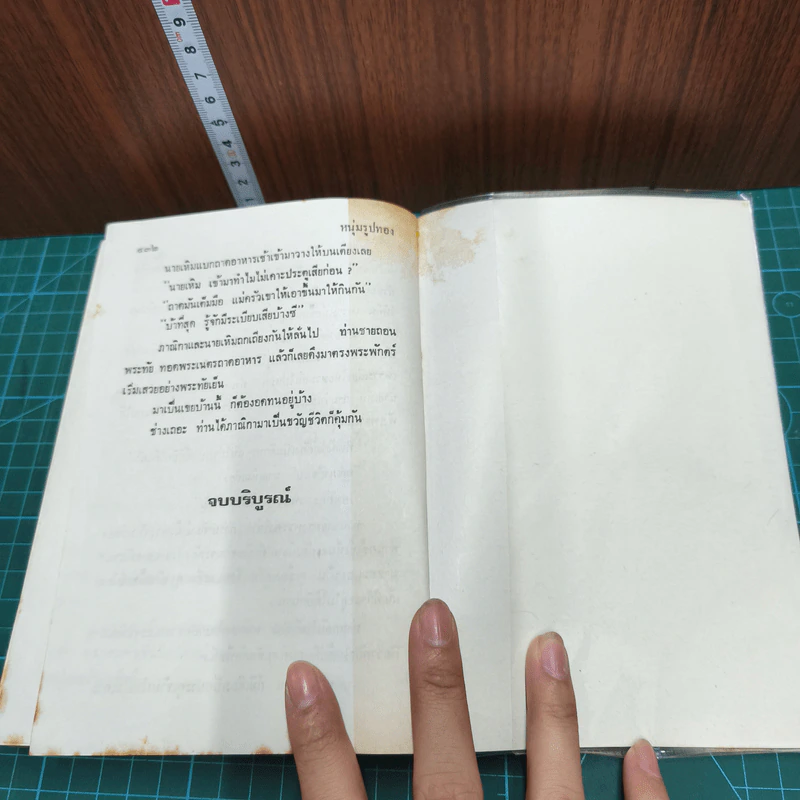 ๔๓๒
หนุ่มรูปทอง
นายเหิมแบกถาดอาหารเช้าเข้ามาวางให้บนเตียงเลย
"นายเหิม เข้ามาทำไมไม่เคาะประตูเสียก่อน ?"
"ถาดมันเต็มมือ แม่ครัวเขาให้เอาขึ้นมาให้กินกัน"
"บ้าที่สุด รู้จักมีระเบียบเสียบ้างซี"
ภาณิกาและนายเหิมถกเถียงกันให้ลั่นไป ท่านชายถอน
พระทัย ทอดพระเนตรถาดอาหาร แล้วก็เลยดึงมาตรงพระพักตร์
เริ่มเสวยอย่างพระทัยเย็น
มาเป็นเขยบ้านนี้ ก็ต้องอดทนอยู่บ้าง
ช่างเถอะ ท่านได้ภาณิกามาเป็นขวัญชีวิตก็คุ้มกัน
จบบริบูรณ์
1 2 3 4 5 6 7 8 9